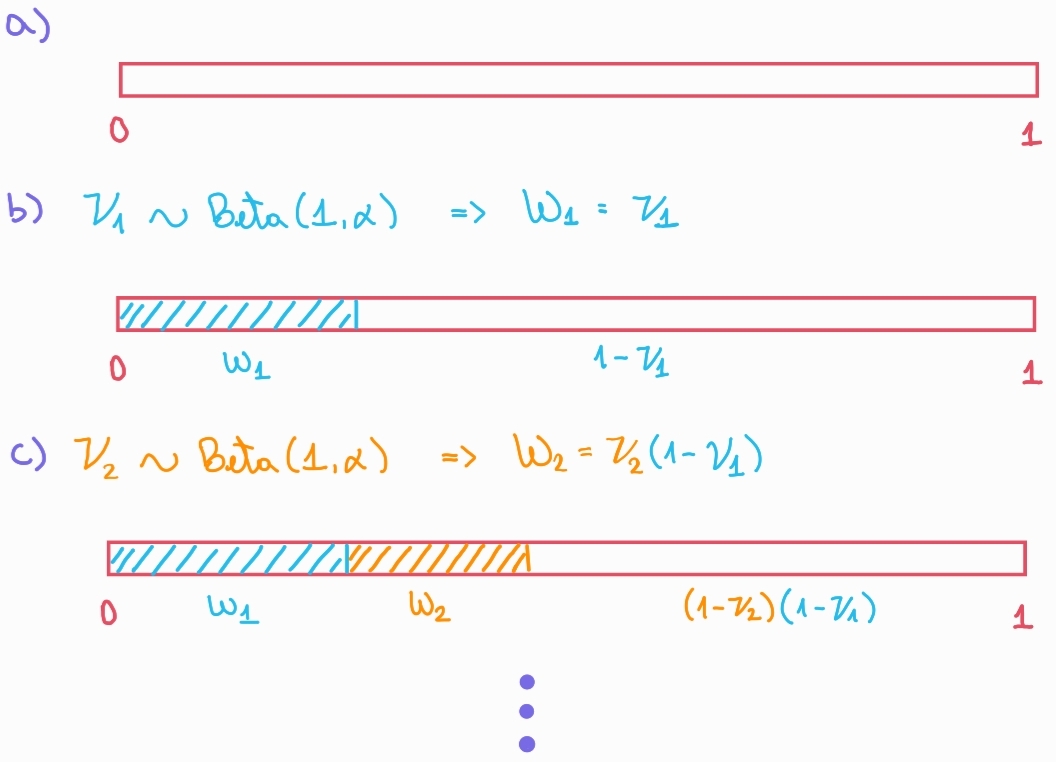 a)
0 1
b) V₁ ~ Beta(1,α) => W₁ = V₁
0 W₁ 1-V₁ 1
c) V₂ ~ Beta(1,α) => W₂ = V₂(1-V₁)
0 W₁ W₂ (1-V₂)(1-V₁) 1